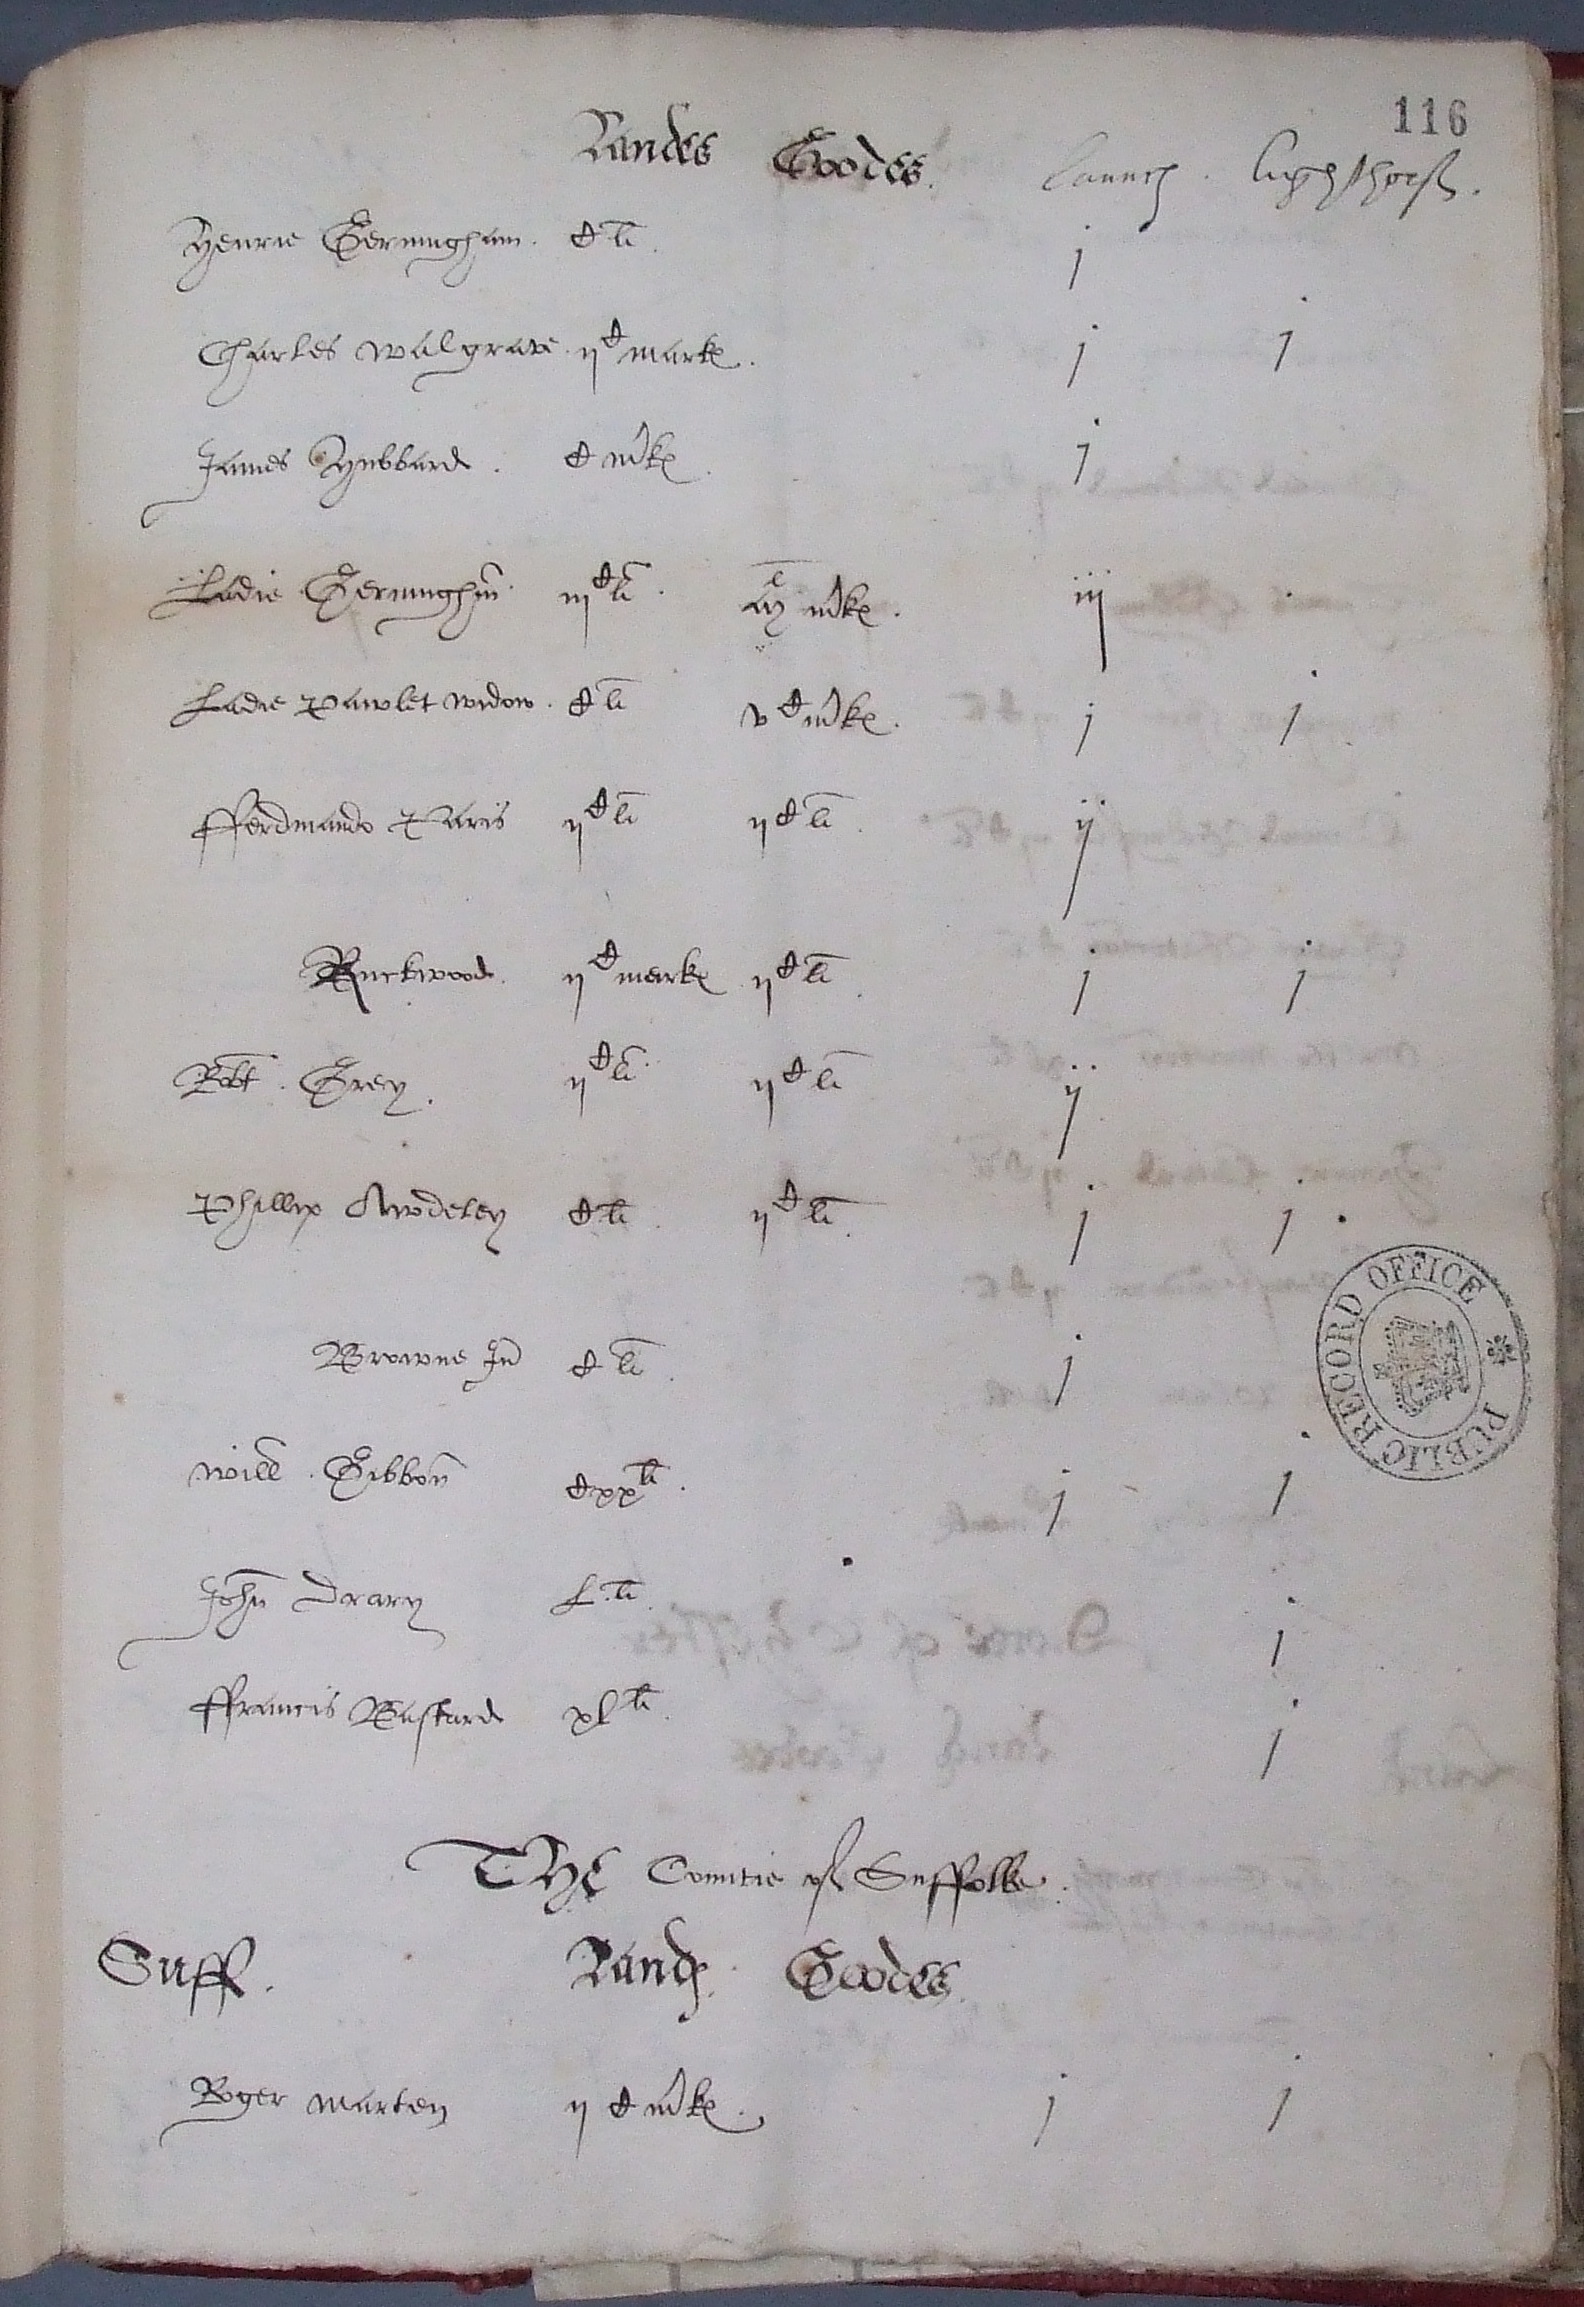 116
Landes Goodes. Launc͠ . lighthorss.
Henrie Gerningham . C li . j
Charles Walgrave . ij C marke . j j
James Hubbard . C m͛ke . j
Ladie Gerninghm̃ . iij C li . m͛ke . iij
Ladie Pawlet widow . C li v C m͛ke . j j
Fferdinando Paris ij C li ij C li . ij
Ruckwood . ij C marke ij C li . j j
Robt̃ . Grey . ij C li . ij C li ij
Phillip Awdeley C li . ij C li . j j
Browne Ju͠ C li . j
Will͠m . Gibbon͠ Cxx li . j j
John͠ Drury L . li . j
Ffrancis Bastard xl li . j
THE Countie of Suffolke .
Suff . Landes . Goodes .
Roger Marten ij C m͛ke . j j
PUBLIC RECORD OFFICE